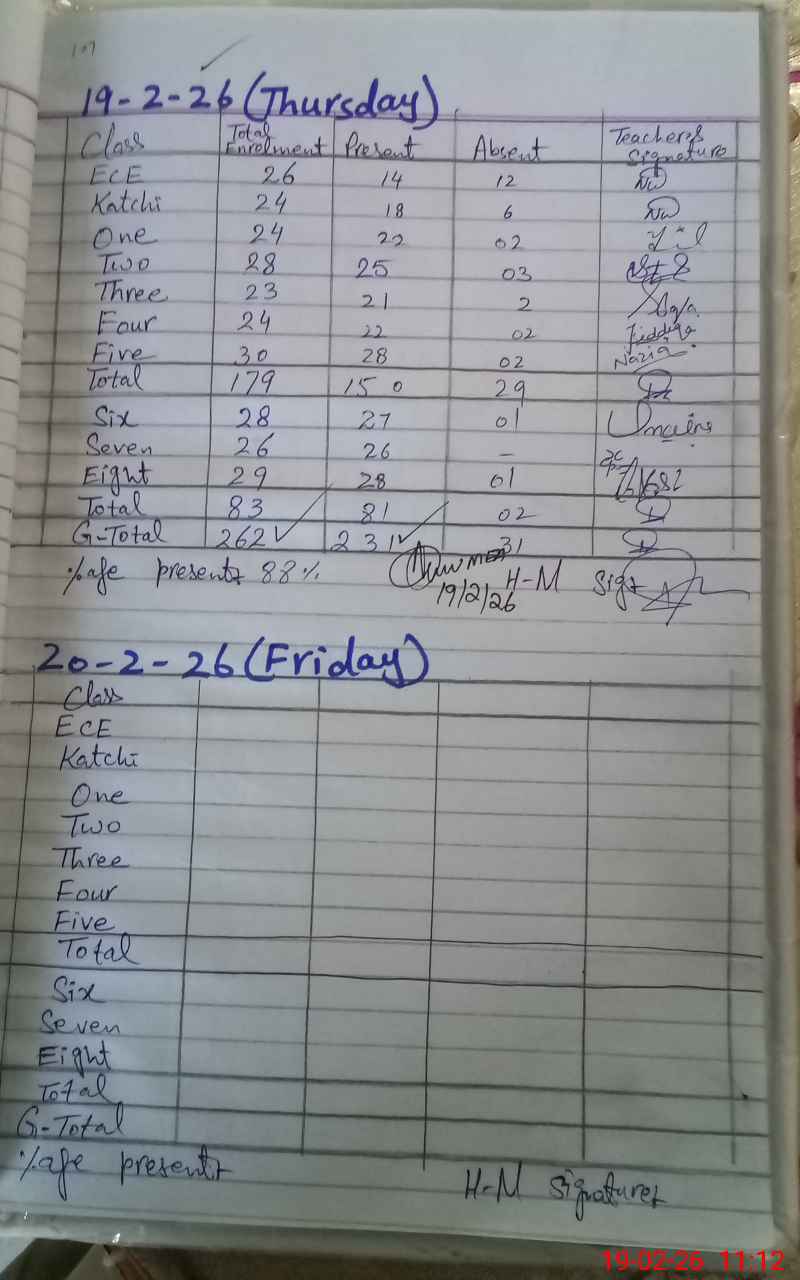 107
19-2-26 (Thursday)
Class Total Enrolment Present Absent Teacher's Signature
ECE 26 14 12
Katchi 24 18 6
One 24 22 02
Two 28 25 03
Three 23 21 2
Four 24 22 02
Five 30 28 02 Nazia
Total 179 150 29
Six 28 27 01
Seven 26 26 –
Eight 29 28 01
Total 83 81 02
G-Total 262 231 31
%age present 88%
19/2/26 H-M Sig
20-2-26 (Friday)
Class
ECE
Katchi
One
Two
Three
Four
Five
Total
Six
Seven
Eight
Total
G-Total
%age present
H-M Signature
19-02-26 11:12